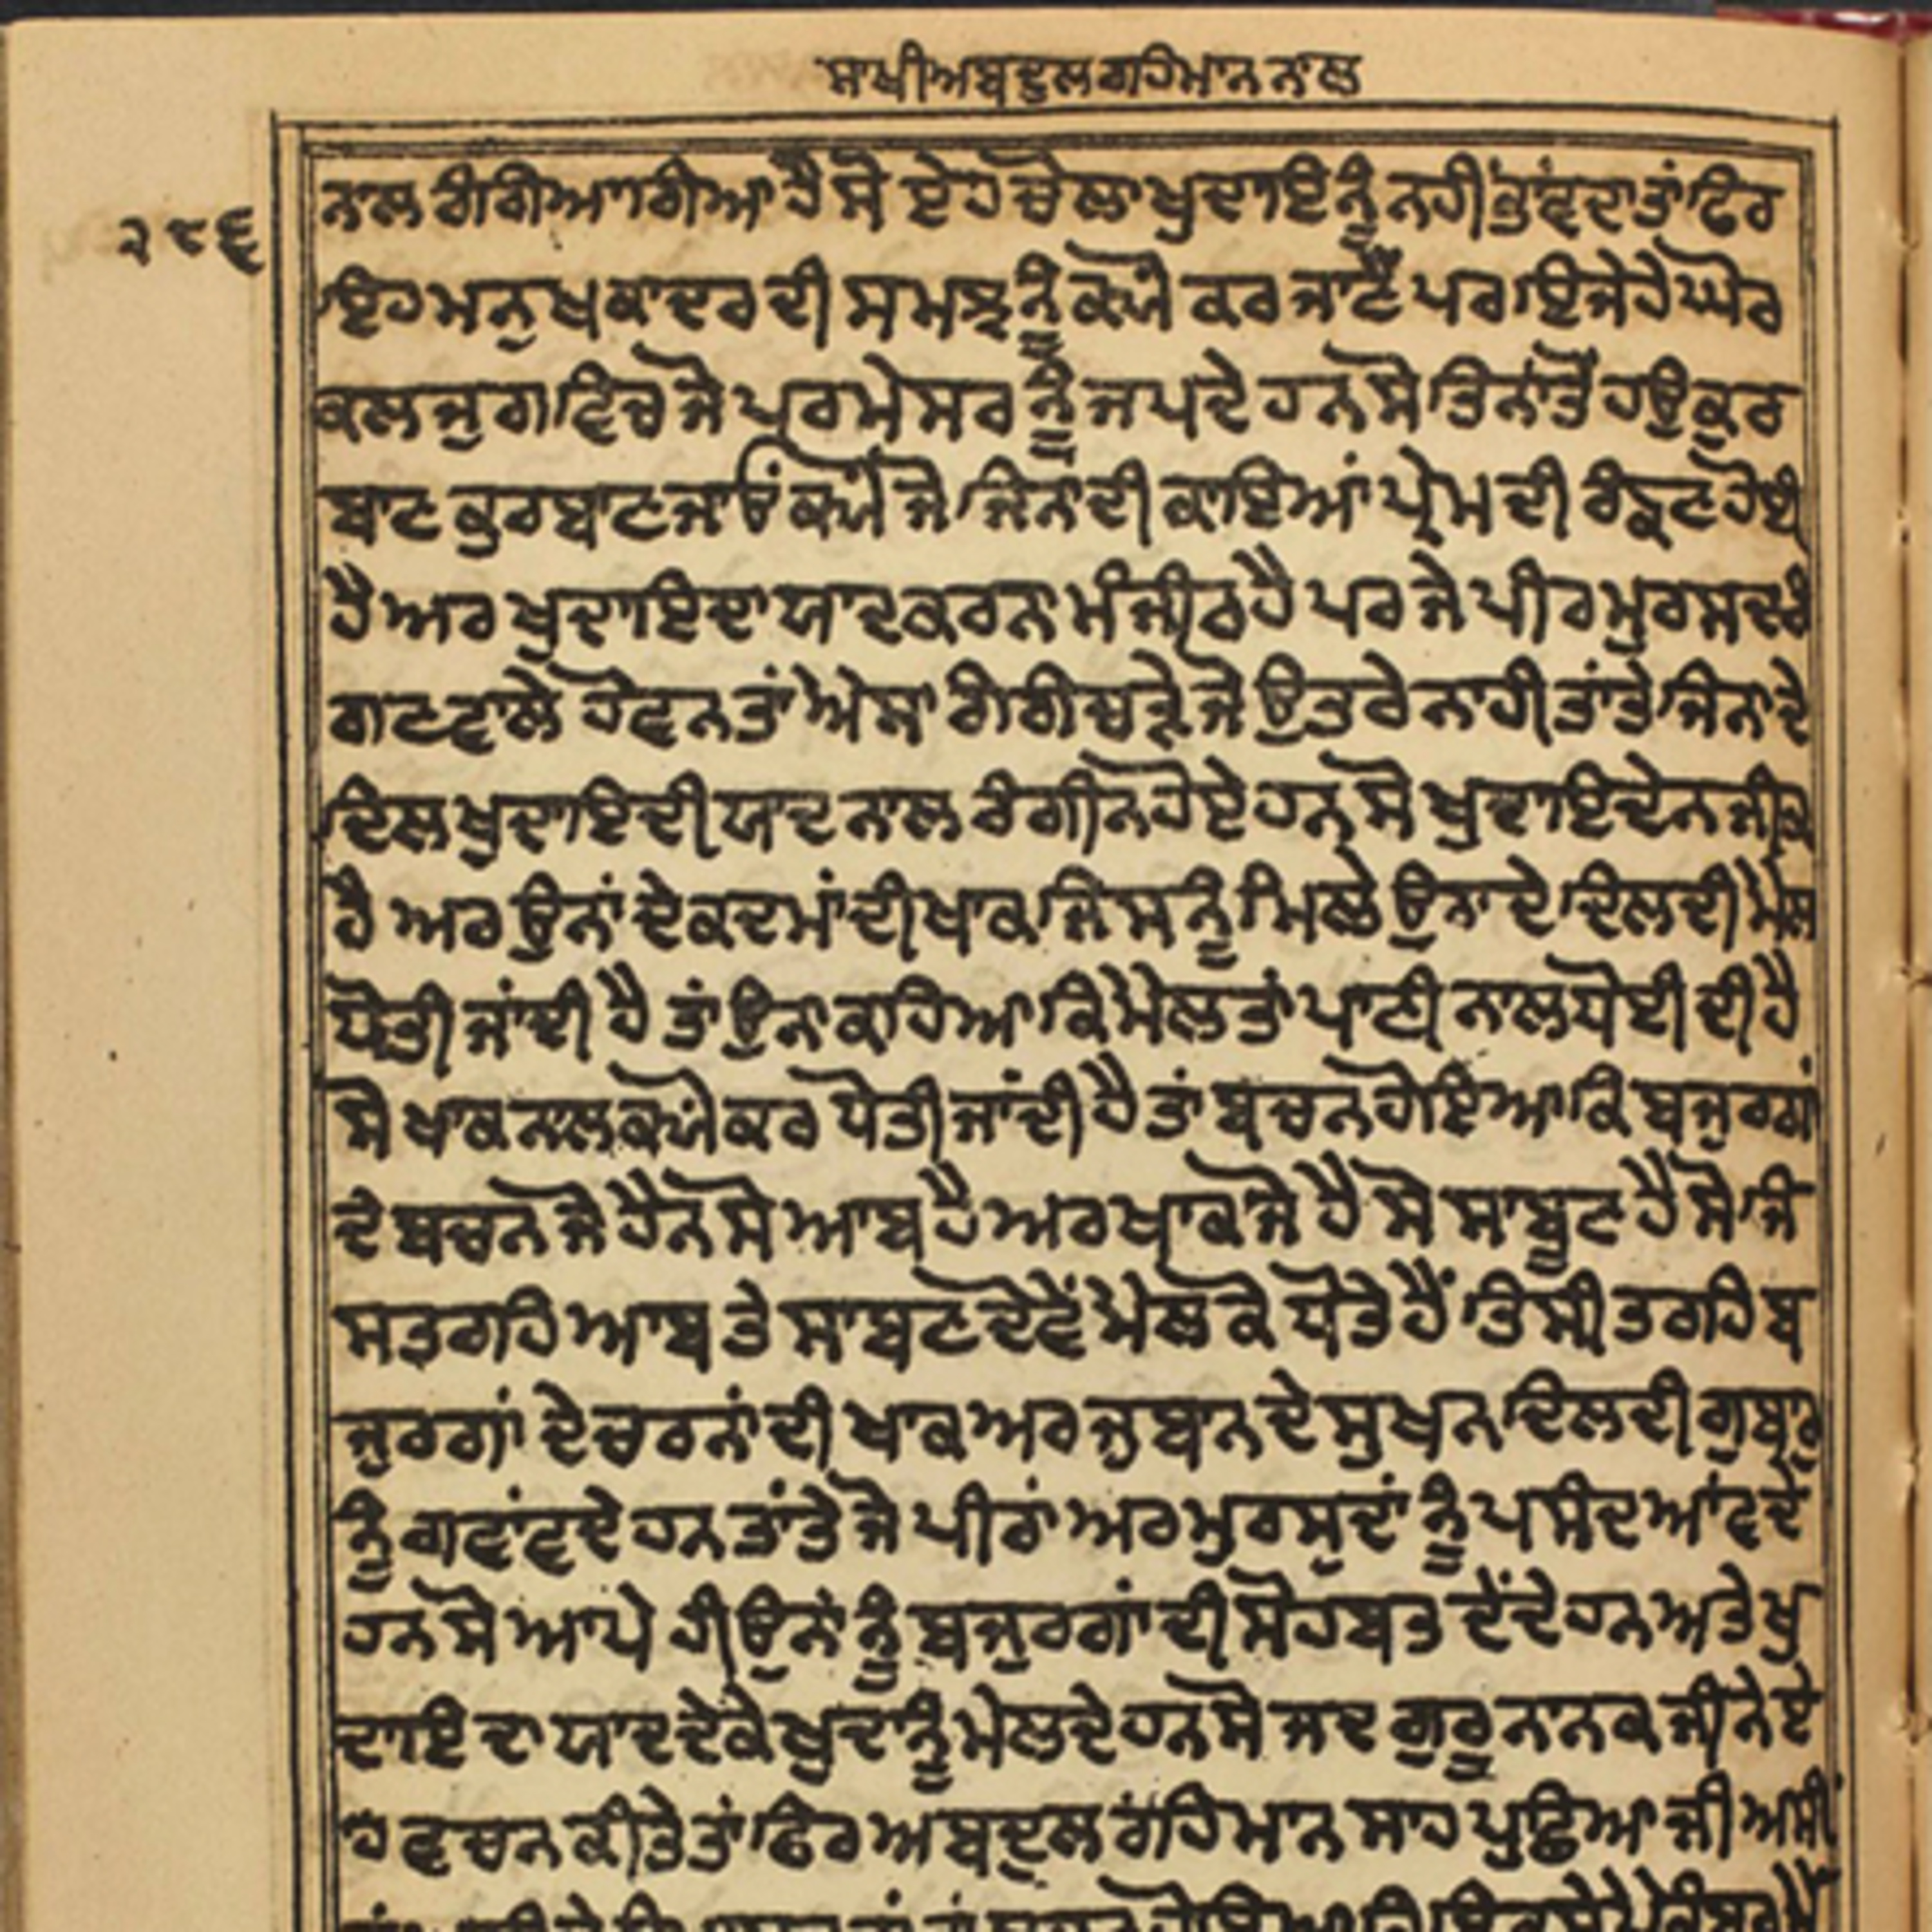 ਸਾਖੀਅਬਦੁਲਰਹਿਮਾਨ ਨਾਲ
ਨਾਲ ਰੰਗਿਆ ਗਿਆ ਹੈ ਸੋ ਏਹ ਚੋਲਾ ਖੁਦਾਇ ਨੂੰ ਨਹੀਂ ਭਾਂਵਦਾ ਤਾਂ ਫਿਰ
੨੮੬
ਇਹ ਮਨੁਖ ਕਾਦਰ ਦੀ ਸਮਝ ਨੂੰ ਕਯੋਂ ਕਰ ਜਾਣੈਂ ਪਰ ਇਜੇਹੇ ਘੋਰ
ਕਲਜੁਗ ਵਿਚ ਜੋ ਪਰਮੇਸਰ ਨੂੰ ਜਪਦੇ ਹਨ ਸੋ ਤਿਨਾਂ ਤੋਂ ਹਉ ਕੁਰ
ਬਾਣ ਕੁਰਬਾਣ ਜਾਓਂ ਕਯੋਂ ਜੋ ਜਿਨਾਂ ਦੀ ਕਾਇਆਂ ਪ੍ਰੇਮ ਦੀ ਰੰਙਣ ਹੋਈ
ਹੈ ਅਰ ਖੁਦਾਇ ਦਾ ਯਾਦ ਕਰਨਾ ਮੰਜੀਠ ਹੈ ਪਰ ਜੇ ਪੀਰ ਮੁਰਸਦ ਰੰ
ਗਣ ਵਾਲੇ ਹੋਵਨ ਤਾਂ ਐਸਾ ਰੰਗ ਚੜੇ ਜੋ ਉਤਰੇ ਨਾਹੀ ਤਾਂਤੇ ਜਿਨਾ ਦੇ
ਦਿਲ ਖੁਦਾਇ ਦੀ ਯਾਦ ਨਾਲ ਰੰਗੀਨ ਹੋਏ ਹਨ ਸੋ ਖੁਦਾਇ ਦੇ ਨਜੀਕ
ਹੈ ਅਰ ਉਨਾਂ ਦੇ ਕਦਮਾਂ ਦੀ ਖਾਕ ਜਿਸ ਨੂੰ ਮਿਲੇ ਉਨਾ ਦੇ ਦਿਲ ਦੀ ਮੈਲ
ਧੋਤੀ ਜਾਂਦੀ ਹੈ ਤਾਂ ਉਨ ਕਹਿਆ ਕਿ ਮੈਲ ਤਾਂ ਪਾਣੀ ਨਾਲ ਧੋਈ ਦੀ ਹੈ
ਸੋ ਖਾਕ ਨਾਲ ਕਯੋਂ ਕਰ ਧੋਤੀ ਜਾਂਦੀ ਹੈ ਤਾਂ ਬਚਨ ਹੋਇਆ ਕਿ ਬਜੁਰਗਾਂ
ਦੇ ਬਚਨ ਜੋ ਹੈਨ ਸੋ ਆਬ ਹੈ ਅਰ ਖਾਕ ਜੋ ਹੈ ਸੋ ਸਾਬੂਣ ਹੈ ਸੋ ਜਿ
ਸ ਤਰਹਿ ਆਬ ਤੇ ਸਾਬਣ ਦੋਵੇਂ ਮੈਲ ਕੋ ਧੋਤੇ ਹੈਂ ਤਿਸੀ ਤਰਹਿ ਬ
ਜੁਰਗਾਂ ਦੇ ਚਰਨਾਂ ਦੀ ਖਾਕ ਅਰ ਜੁਬਾਨ ਦੇ ਸੁਖਨ ਦਿਲ ਦੀ ਗੁਬਾਰ
ਨੂੰ ਗਵਾਂਵਦੇ ਹਨ ਤਾਂਤੇ ਜੋ ਪੀਰਾਂ ਅਰ ਮੁਰਸੁਦਾਂ ਨੂੰ ਪਸੰਦ ਆਂਵਦੇ
ਹਨ ਸੋ ਆਪੇ ਹੀ ਉਨਾਂ ਨੂੰ ਬਜੁਰਗਾਂ ਦੀ ਸੋਹਬਤ ਦੇਂਦੇ ਹਨ ਅਤੇ ਖੁ
ਦਾਇ ਦਾ ਯਾਦ ਦੇਕੇ ਖੁਦਾ ਨੂੰ ਮੇਲਦੇ ਹਨ ਸੋ ਜਦ ਗੁਰੂ ਨਾਨਕ ਜੀ ਨੇ ਏ
ਹ ਵਚਨ ਕੀਤੇ ਤਾਂ ਫਿਰ ਅਬਦੁਲ ਰਹਿਮਾਨ ਸਾਹ ਪੁਛਿਆ ਜੀ ਅਸੀਂ